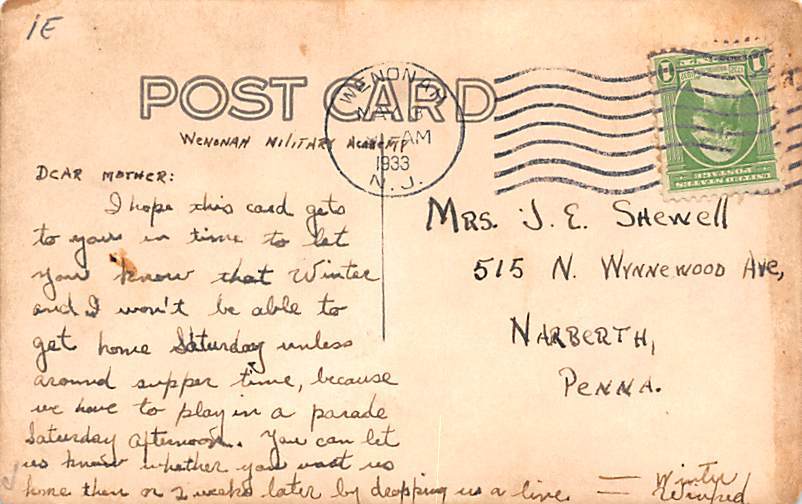 1E
POST CARD
WENONAH
MAY
AM
1933
N. J.
1
1
WENONAH MILITARY ACADEMY
DEAR MOTHER:
I hope this card gets
to you in time to let
you know that Winter
and I won't be able to
get home Saturday unless
around supper time, because
we have to play in a parade
Saturday afternoon. You can let
us know whether you want us
home then or 2 weeks later by dropping us a line. =
MRS. J. E. SHEWELL
515 N. WYNNEWOOD AVE,
NARBERTH,
PENNA.